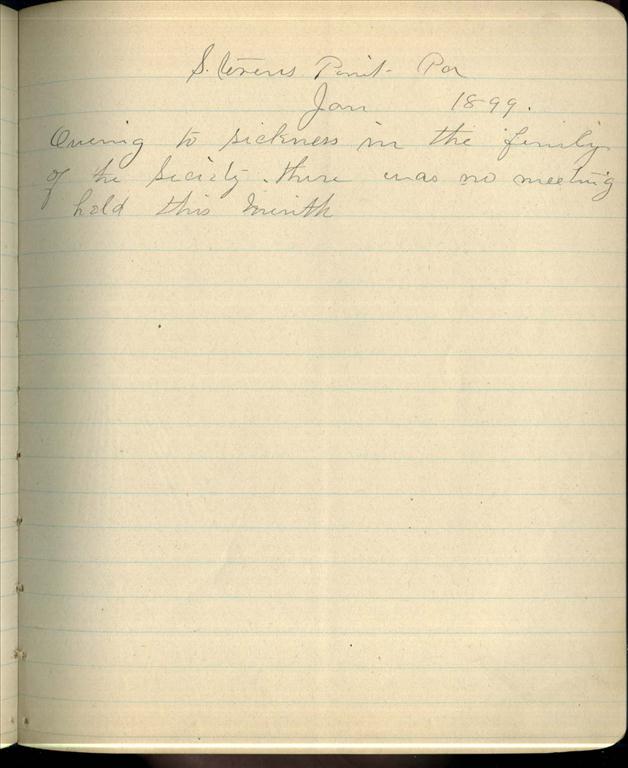 Stevens Point Pa
Jan 1899.
Owing to sickness in the family
of the Society there was no meeting
held this month